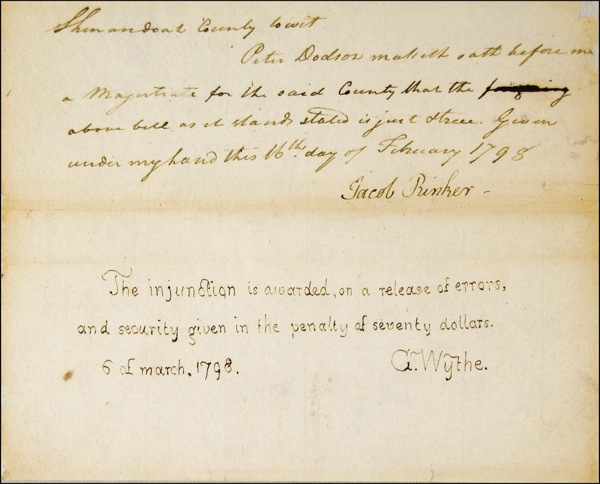 Shenandoah County towit
Peter Dodson maketh oath before me
a Magistrate for the said County that the
above bill as it stands stated is just & true. Given
under my hand this 16th. day of February 1798
Jacob Rinker -
The injunction is awarded, on a release of errors,
and security given in the penalty of seventy dollars.
6 of march, 1798.   G. Wythe.